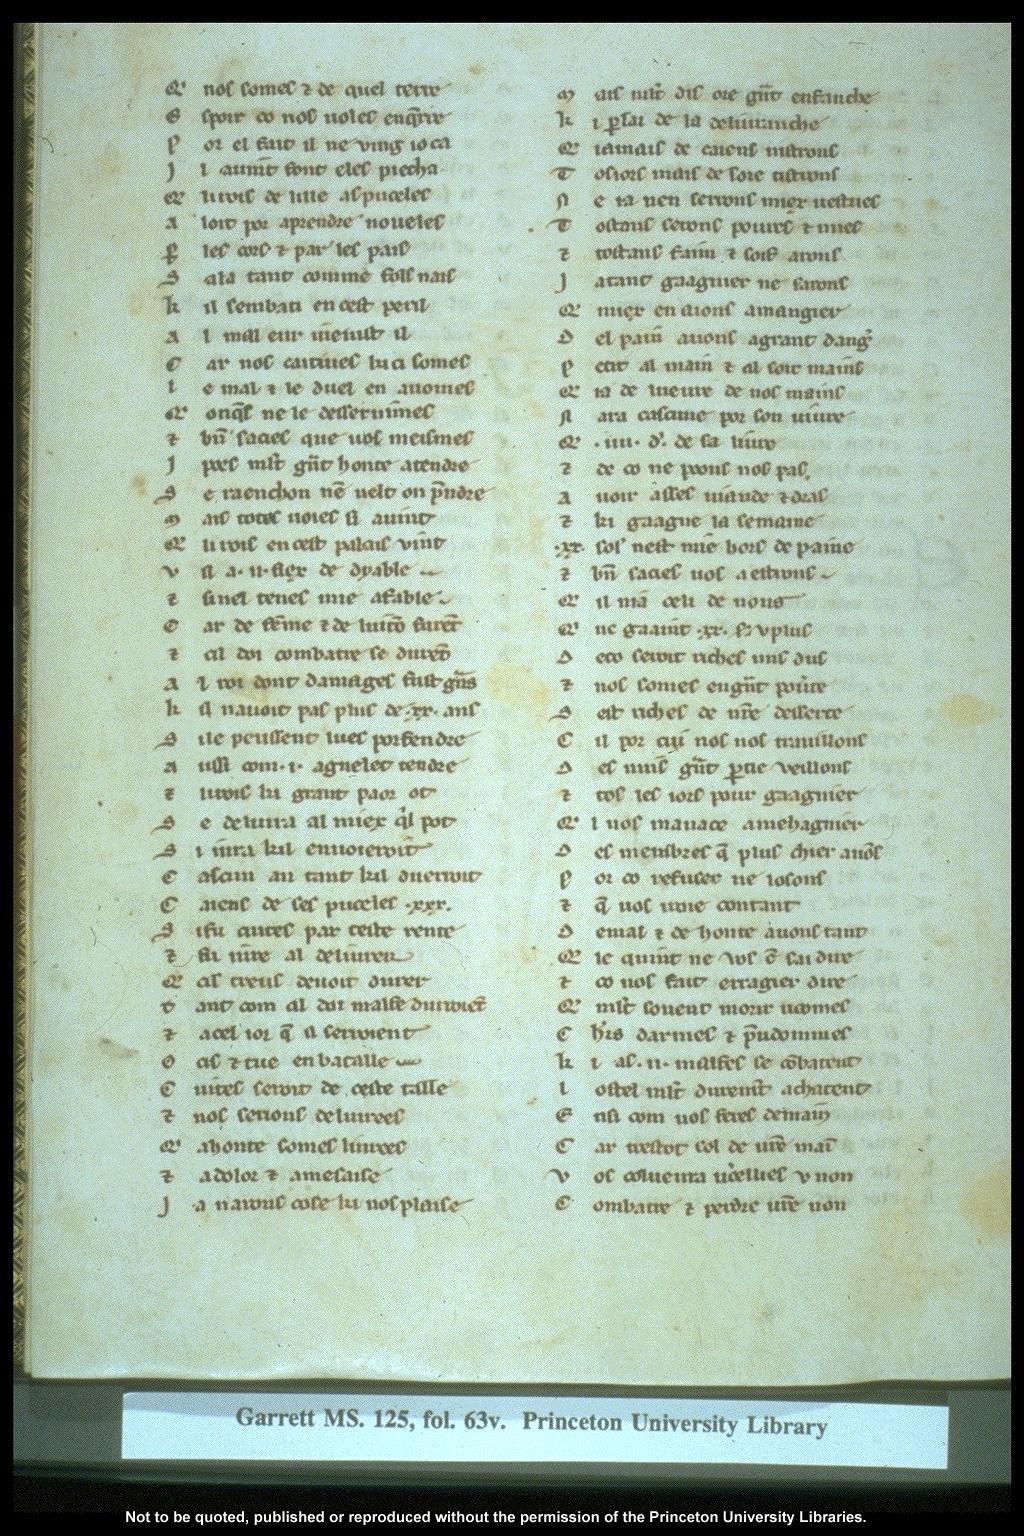 Q' nos somes ⁊ de quel terre
E spoir co nos uoles enq̄rre
P or el fait il ne ving io ca
J l auint̄ font eles piecha
Q li rois de lille as puceles
A loit por aprendre noueles
P les cors ⁊ par les pais
S ala tant comme fols nais
K il sembati en cest peril
A l mal eur
C ar nos caitiues ki ci somes
L e mal ⁊ le duel en auomes
Q' onq̄s ne le desseruimes
⁊ bn̄ sacies que uos meismes
J poes mlt̄ gn̄t honte atendre
S e raenchon nē uelt on p̄ndre
M ais totes uoies si auint
Q li rois en cest palais vint
V il a .ii. fiex de dyable
⁊ sinel tenes mie a fable
C ar de feme ⁊ de luitō furēt
⁊ cil doi combatre se durēt
A l roi dont damages fust gn̄s
K il nauoit pas plus de .xx. ans
S ile peussent tues porfendre
A ussi com .i. agnelet tendre
⁊ li rois ki grant paor ot
S e deliura al miex q'l pot
S i iura kil enuoieroit
C ascun an tant kil duerroit
C aiens de ses puceles .xxx.
S ifu cuites par ceste rente
⁊ fu iure al deliurer
Q cis treus deuoit durer
T ant com cil doi malfe durroiēt
⁊ a cel ior q̄ il seroient
O cis ⁊ tue en bataille
C uites seroit de ceste taille
⁊ nos serions deliurees
Q' a honte somes liurees
⁊ a dolor ⁊ a mesaise
J a n arons cose ki nos plaise
M ais mlt̄ dis ore gn̄t enfanche
K i p̱lai de la deliuranche
Q iamais de caiens nistrons
T osiors mais de soie tistrons
N e ia nen serons miex uestues
T ostans serons poures ⁊ nues
⁊ tostans faim ⁊ soif arons
J a tant gaagnier ne sarons
Q miex en aions a mangier
D el pain auons a grant dang'
P etit al main ⁊ al soir mains
Q ia de lueure de nos mains
N ara cascune por son uiure
Q .iiii. d'. de la liure
⁊ de co ne poons nos pas
A uoir asses uiande ⁊ dras
⁊ ki gaagne la semaine
.xx. sols nest mie hors de paine
⁊ bn̄ sacies uos a estrous
Q il nia celi de nous
Q' ne gaaint .xx. s' v plus
D eco seroit riches uns dus
⁊ nos somes en gn̄t pou'te
S est riches de nr̄e desserte
C il por cui nos nos trauillons
D es nuis gn̄t p̱tie veillons
⁊ tos les iors pour gaagnier
Q' l nos manace a mehagnier
D es menbres q̄ plus chier auōs
P or co refuser ne losons
⁊ q̄ uos iroie contant
D e mal ⁊ de honte auons tant
Q le quint ne vos ē sai dire
⁊ co nos fait erragier dire
Q mlt̄ souent morir ueomes
C hrs̄ darmes ⁊ p̄udommes
K i as .ii. malfes se cōbatent
L ostel mlt̄ durem̄t achatent
E nsi com uos feres demain
C ar trestot sol de ur̄e main
V os couenra u'ellues v non
C ombatre ⁊ perdre ur̄e non
Garrett MS. 125, fol. 63v. Princeton University Library
Not to be quoted, published or reproduced without the permission of the Princeton University Libraries.